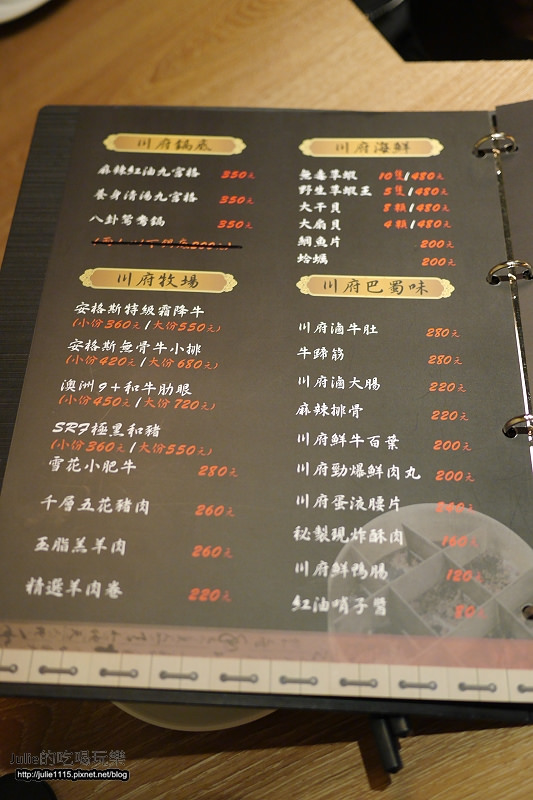 川府鍋底
麻辣紅油九宮格 350元
養身清湯九宮格 350元
八卦鴛鴦鍋 350元
川府牧場
安格斯特級霜降牛
(小份360元/大份550元)
安格斯無骨牛小排
(小份420元/大份680元)
澳洲9+和牛肋眼
(小份450元/大份720元)
SRF極黑和豬
(小份360元/大份550元)
雪花小肥牛 280元
千層五花豬肉 260元
玉脂羔羊肉 260元
精選羊肉卷 220元
川府海鮮
無毒草蝦 10隻/480元
野生草蝦王 5隻/480元
大干貝 8顆/480元
大扇貝 4顆/480元
鯛魚片 200元
蛤蠣 200元
川府巴蜀味
川府滷牛肚 280元
牛蹄筋 280元
川府滷大腸 220元
麻辣排骨 220元
川府鮮牛百葉 200元
川府勁爆鮮肉丸 200元
川府蛋液腰片
秘製現炸酥肉 160元
川府鮮鴨腸 120元
紅油哨子醬 80元
Julie的吃喝玩樂
http://julie1115.pixnet.net/blog